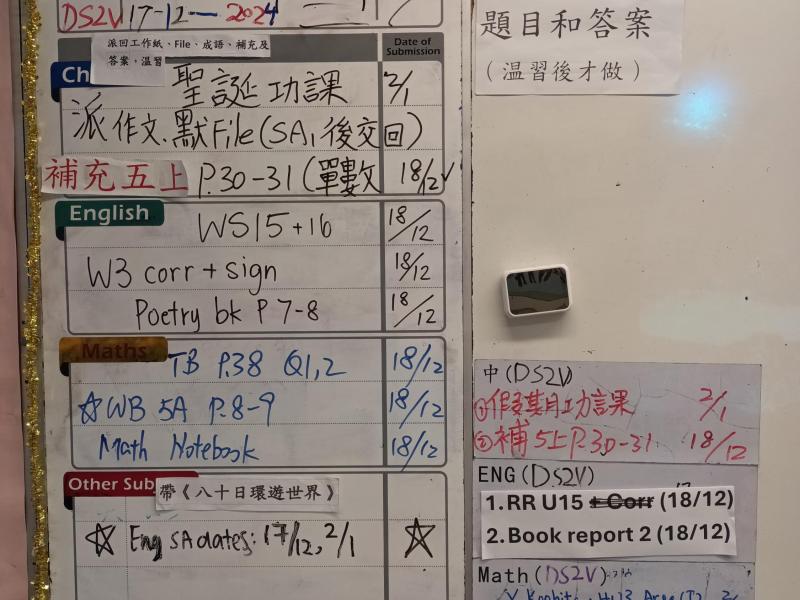 DS2V 17-12-2024
派回工作紙、File、成語、補充及
答案，温習
Date of
Submission
Ch
聖誕功課 2/1
派作文.默File(SA1後交回)
補充五上 P.30-31(單數 18/12✓
English
WS15+16 18/12
W3 corr + sign 18/12
Poetry bk P 7-8 18/12
Maths
TB P.38 Q1,2 18/12
☆WB 5A P.8-9 18/12
Math Notebook 18/12
Other Sub
帶《八十日環遊世界》
☆ Eng SA dates: 17/12, 2/1 ☆
題目和答案
（温習後才做）
中(DS2V)
①假期功課 2/1
②補5上P.30-31 18/12
ENG(DS2V)
1.RR U15 + Corr (18/12)
2.Book report 2 (18/12)
Math(DS2V)